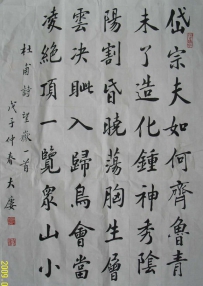 岱宗夫如何齊魯青
未了造化鍾神秀陰
陽割昏曉蕩胸生層
雲决眦入歸鳥會當
凌絕頂一覽衆山小
杜甫詩望嶽一首
戊子仲春大廈
2009